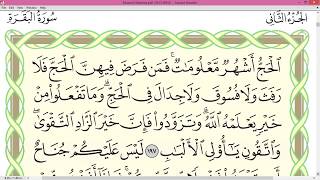 الجزء الثاني
سورة البقرة
ٱلْحَجُّ أَشْهُرٌ مَّعْلُومَٰتٌ ۚ فَمَن فَرَضَ فِيهِنَّ ٱلْحَجَّ فَلَا
رَفَثَ وَلَا فُسُوقَ وَلَا جِدَالَ فِى ٱلْحَجِّ ۗ وَمَا تَفْعَلُوا۟ مِنْ
خَيْرٍ يَعْلَمْهُ ٱللَّهُ ۗ وَتَزَوَّدُوا۟ فَإِنَّ خَيْرَ ٱلزَّادِ ٱلتَّقْوَىٰ ۚ
وَٱتَّقُونِ يَٰٓأُو۟لِى ٱلْأَلْبَٰبِ ١٩٧ لَيْسَ عَلَيْكُمْ جُنَاحٌ